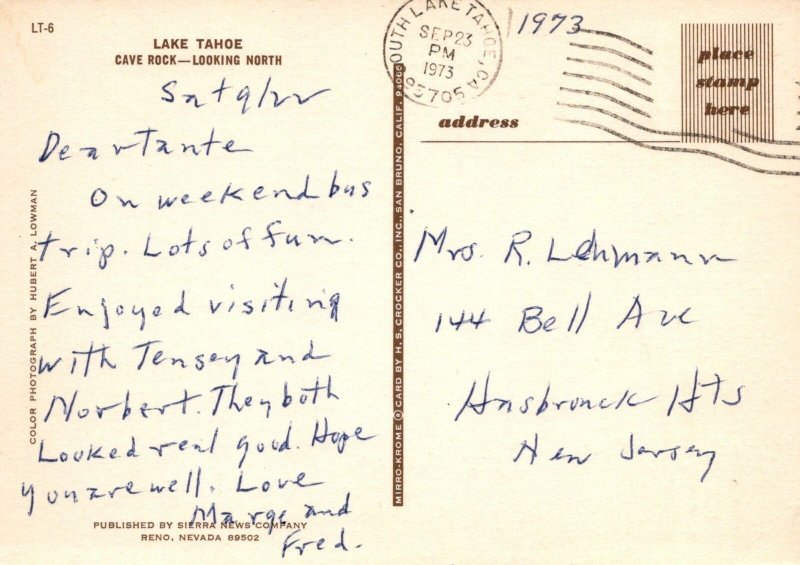 LT-6
LAKE TAHOE
CAVE ROCK—LOOKING NORTH
Sat 9/22
Dear Tante
On weekend bus
trip. Lots of fun.
Enjoyed visiting
with Tensey and
Norbert. They both
Looked real good. Hope
you are well. Love
Marge and
Fred.
PUBLISHED BY SIERRA NEWS COMPANY
RENO, NEVADA 89502
COLOR PHOTOGRAPH BY HUBERT A. LOWMAN
MIRRO-KROME ® CARD BY H. S. CROCKER CO., INC., SAN BRUNO, CALIF. 94066
SOUTH LAKE TAHOE, CA
SEP 23
PM
1973
95705
1973
place
stamp
here
address
Mrs. R. Lehmann
144 Bell Ave
Hasbrouck Hts
New Jersey